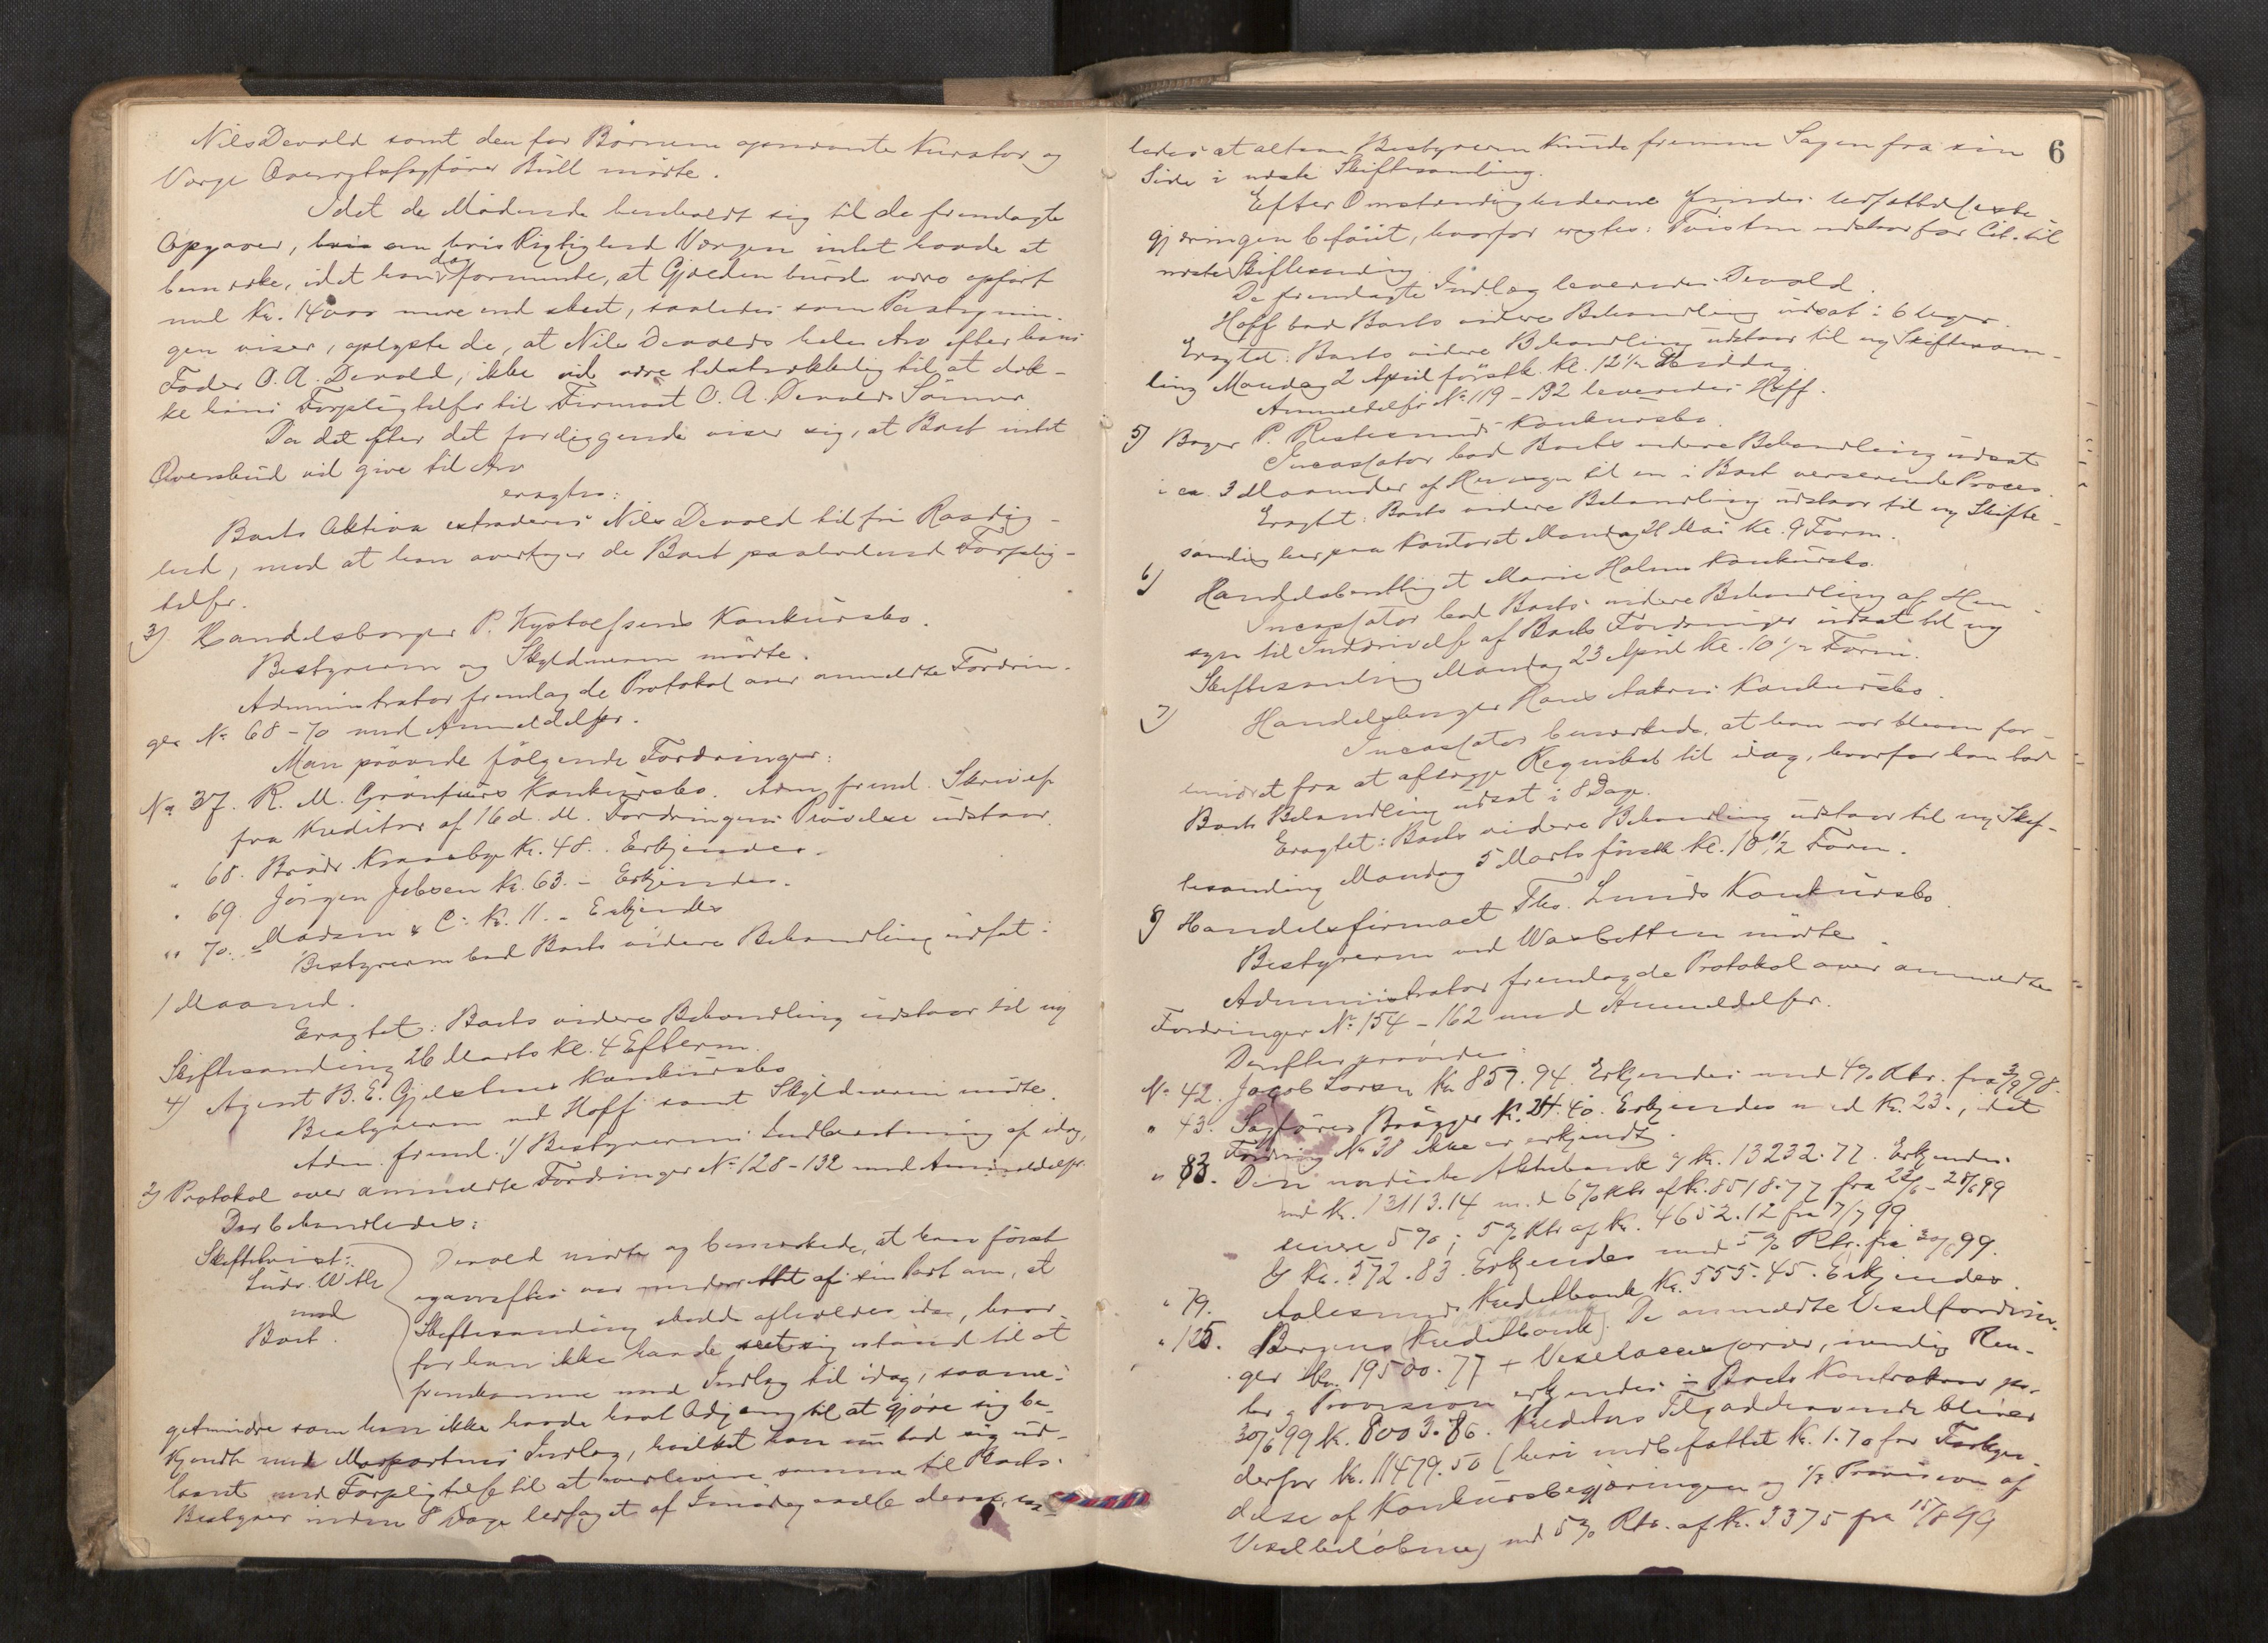 Nils Devold samt den for Börnene opnævnte Kurator og
Værge Overretssagfører Bull mödte.
Idet de Mödende henholdt sig til de fremlagte
Opgaver, om hvis Rigtighed Værgen intet havde at
bemærke, idet han dog formente, at Gjælden burde være opfört
med Kr. 14000 mere end skeet, saaledes som
gen viser, oplyste de, at Nils Devolds hele Arv efter hans
Fader O. A. Devold, ikke vil være tilstrækkelig til at dæk-
ke hans Forpligtelser til Firmaet O. A. Devolds Sönner.
Da det efter det foreliggende viser sig, at Boet intet
Overskud vil give til Arv
eragtes:
Boets Aktiva extraderes Nils Devold til fri Raadig-
hed, mod at han overtager de Boet paahvilende Forplig-
telser.
3) Handelsborger P. Kystolfsens Konkursbo.
Bestyreren og Skyldneren mödte.
Administrator fremlagde Protokol over anmeldte Fordrin-
ger No 68-70 med Anmeldelser.
Man prövede fölgende Fordringer:
No 37. R. M. Grönfurs Konkursbo. Adm. freml. Skrivelse
fra Kreditor af 16 d. M. Fordringens Prövelse udstaar.
" 68. Brödr. Kr. 48.. Erkjendes.
" 69. Jörgen Jebsen Kr. 63.- Erkjendes.
" 70. Madsen & Co: Kr. 11.- Erkjendes
Bestyreren bad Boets videre Behandling udsat i
1 Maaned.
Eragtet: Boets videre Behandling udstaar til ny
Skiftesamling 26 Marts Kl. 4 Efterm.
4) Agent B. E. Gjelstens Konkursbo
Bestyreren ved Hoff samt Skyldneren mödte.
Adm. freml. 1) Bestyrerens Indberetning af idag,
2) Protokol over anmeldte Fordringer No 128-132 med Anmeldelser.
Der behandledes:
Skiftetvist:
mod
Boet.
Devold mödte og bemærkede, at han först
igaaraftes var underrettet af sin Part om, at
Skiftesamling skulde afholdes idag, hvor-
for han ikke havde seet sig istand til at
fremkomme med Indlæg til idag, saame-
getmindre som han ikke havde havt Adgang til at gjöre sig be-
kjendt med Modpartens Indlæg, hvilket han nu bad sig ud-
laant med Forpligtelse til at overlevere samme til Boets
Bestyrer inden 8 Dage ledsaget af Imödegaaelse deraf, saa-
6
ledes at altsaa Bestyreren kunde fremme Sagen fra sin
Side i næste Skiftesamling.
Efter Omstændighederne findes
gjæringen beföiet, hvorfor eragtes: Tvisten udstaar for Cit. til
næste Skiftesamling.
De fremlagte Indlæg leveredes Devold.
Hoff bad Boets videre Behandling udsat i 6 Uger.
Eragtet: Boets videre Behandling udstaar til ny Skiftesam-
ling Mandag 2 April förstk. Kl. 12½ Middag.
Anmeldelser No 119-132 leveredes Hoff.
5) Bager P. Konkursbo.
Incassator bad Boets videre Behandling udsat
i ca. 3 Maaneder af Hensyn til en i Boet verserende Proces.
Eragtet: Boets videre Behandling udstaar til ny Skifte-
samling her paa Kontoret Mandag 21 Mai Kl. 9 Form.
6) Handelsberettiget Marie Holms Konkursbo.
Incassator bad Boets videre Behandling af Hen-
syn til Inddrivelse af Boets Fordringer udsat til ny
Skiftesamling Mandag 23 April Kl. 10½ Form.
7) Handelsborger Hans Aakres Konkursbo.
Incassator bemærkede, at han var bleven for-
hindret fra at aflægge Regnskab til idag, hvorfor han bad
Boets Behandling udsat i 8 Dage.
Eragtet: Boets videre Behandling udstaar til ny Skif-
tesamling Mandag 5 Marts förstk. Kl. 10½ Form.
8) Handelsfirmaet Ths. Lunds Konkursbo.
Bestyreren ved Wasbotten mödte.
Administrator fremlagde Protokol over anmeldte
Fordringer No 154-162 med Anmeldelser.
Derefter prövedes:
No 42. Jacob Larsen Kr. 857.94. Erkjendes med 4% Rtr. fra 3/9 98.
" 43. Sagförer Brögger Kr. 24.40. Erkjendes med Kr. 23., idet
Fordring No 38 ikke er erkjendt.
" 83. Den nordiske Aktiebank a) Kr. 13232.77. Erkjendes
med Kr. 13113.14 med 6% Rtr. af Kr. 8518.77 fra 22/6-28/6 99
senere 5%; 5% Rtr af Kr. 4652.12 fra 7/7 99.
b) Kr. 572.83. Erkjendes med 5% Rtr. fra 30/6 99.
" 79. Aalesunds Kreditbank Kr. 555.45. Erkjendes.
" 125. Bergens Kreditbank. De anmeldte Vexelfordrin-
ger Kr. 19500.77 + Vexelaccessorier, nemlig Ren-
ter, Provision erkjendes i Boets Kontrakrav pr.
30/6 99 Kr. 8003.86. Kreditors Tilgodehavende bliver
derfor Kr. 11479.50 (heri indbefattet Kr. 1.70 for Forkyn-
delse af Konkursbegjæringen og 1/3 Provision af
Vexelbelöbene) med 5% Rtr. af Kr. 3375 fra 15/8 99